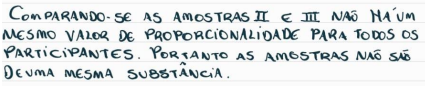 COMPARANDO-SE AS AMOSTRAS II E III NÃO HÁ UM
MESMO VALOR DE PROPORCIONALIDADE PARA TODOS OS
PARTICIPANTES. PORTANTO AS AMOSTRAS NÃO SÃO
DE UMA MESMA SUBSTÂNCIA.